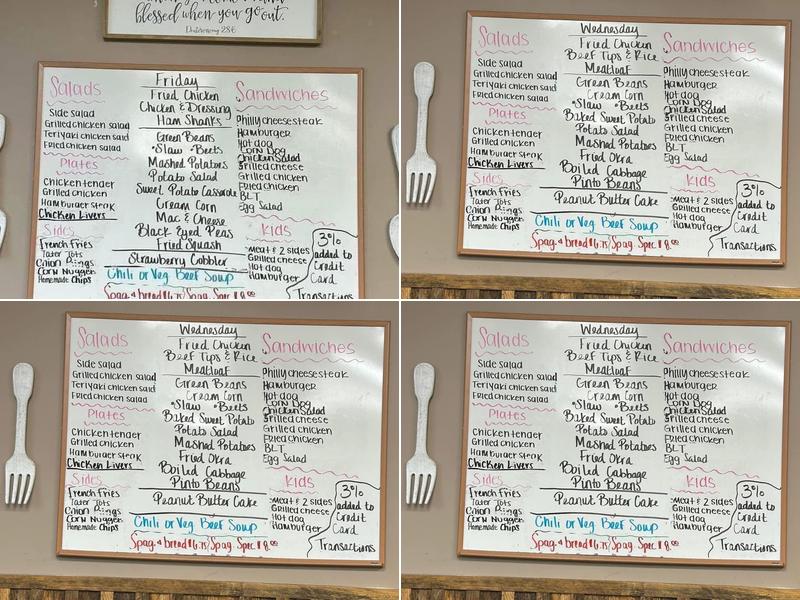 blessed when you go out.
Friday
Salads
Side Salad
Grilled chicken salad
Teriyaki chicken salad
Fried chicken Salad
Plates
Chicken tender
Grilled chicken
Hamburger steak
Chicken Livers
Sides
French Fries
Tater Tots
Onion Rings
Corn Nuggets
Homemade Chips
Fried Chicken
Chicken & Dressing
Ham Shanks
Green Beans
Slaw • Beets
Mashed Potatoes
Potato Salad
Sweet Potato Casserole
Cream Corn
Mac & Cheese
Black Eyed Peas
Fried Squash
Strawberry Cobbler
Chili or Veg Beef Soup
Spag & bread $6.75/Spag. Spec $8.00
Sandwiches
Philly cheese steak
Hamburger
Hot dog
Corn Dog
Chicken Salad
Grilled cheese
Grilled chicken
Fried chicken
BLT
Egg Salad
Kids
Meat & 2 sides
Grilled cheese
Hot dog
Hamburger
3%
added to
Credit
Card
Transactions
Wednesday
Salads
Side Salad
Grilled chicken salad
Teriyaki chicken salad
Fried chicken Salad
Plates
Chicken tender
Grilled chicken
Hamburger steak
Chicken Livers
Sides
French Fries
Tater Tots
Onion Rings
Corn Nuggets
Homemade Chips
Fried Chicken
Beef Tips & Rice
Meatloaf
Green Beans
Cream Corn
•Slaw •Beets
Baked Sweet Potato
Potato Salad
Mashed Potatoes
Fried Okra
Boiled Cabbage
Pinto Beans
Peanut Butter Cake
Chili or Veg Beef Soup
Spag & bread $6.75/Spag. Spec $8.00
Sandwiches
Philly cheese steak
Hamburger
Hot dog
Corn Dog
Chicken Salad
Grilled cheese
Grilled chicken
Fried chicken
BLT
Egg Salad
Kids
Meat & 2 sides
Grilled cheese
Hot dog
Hamburger
3%
added to
Credit
Card
Transactions
Wednesday
Salads
Side Salad
Grilled chicken salad
Teriyaki chicken salad
Fried chicken Salad
Plates
Chicken tender
Grilled chicken
Hamburger steak
Chicken Livers
Sides
French Fries
Tater Tots
Onion Rings
Corn Nuggets
Homemade Chips
Fried Chicken
Beef Tips & Rice
Meatloaf
Green Beans
Cream Corn
•Slaw •Beets
Baked Sweet Potato
Potato Salad
Mashed Potatoes
Fried Okra
Boiled Cabbage
Pinto Beans
Peanut Butter Cake
Chili or Veg Beef Soup
Spag & bread $6.75/Spag. Spec $8.00
Sandwiches
Philly cheese steak
Hamburger
Hot dog
Corn Dog
Chicken Salad
Grilled cheese
Grilled chicken
Fried chicken
BLT
Egg Salad
Kids
Meat & 2 sides
Grilled cheese
Hot dog
Hamburger
3%
added to
Credit
Card
Transactions
Wednesday
Salads
Side Salad
Grilled chicken salad
Teriyaki chicken salad
Fried chicken Salad
Plates
Chicken tender
Grilled chicken
Hamburger steak
Chicken Livers
Sides
French Fries
Tater Tots
Onion Rings
Corn Nuggets
Homemade Chips
Fried Chicken
Beef Tips & Rice
Meatloaf
Green Beans
Cream Corn
•Slaw •Beets
Baked Sweet Potato
Potato Salad
Mashed Potatoes
Fried Okra
Boiled Cabbage
Pinto Beans
Peanut Butter Cake
Chili or Veg Beef Soup
Spag & bread $6.75/Spag. Spec $8.00
Sandwiches
Philly cheese steak
Hamburger
Hot dog
Corn Dog
Chicken Salad
Grilled cheese
Grilled chicken
Fried chicken
BLT
Egg Salad
Kids
Meat & 2 sides
Grilled cheese
Hot dog
Hamburger
3%
added to
Credit
Card
Transactions